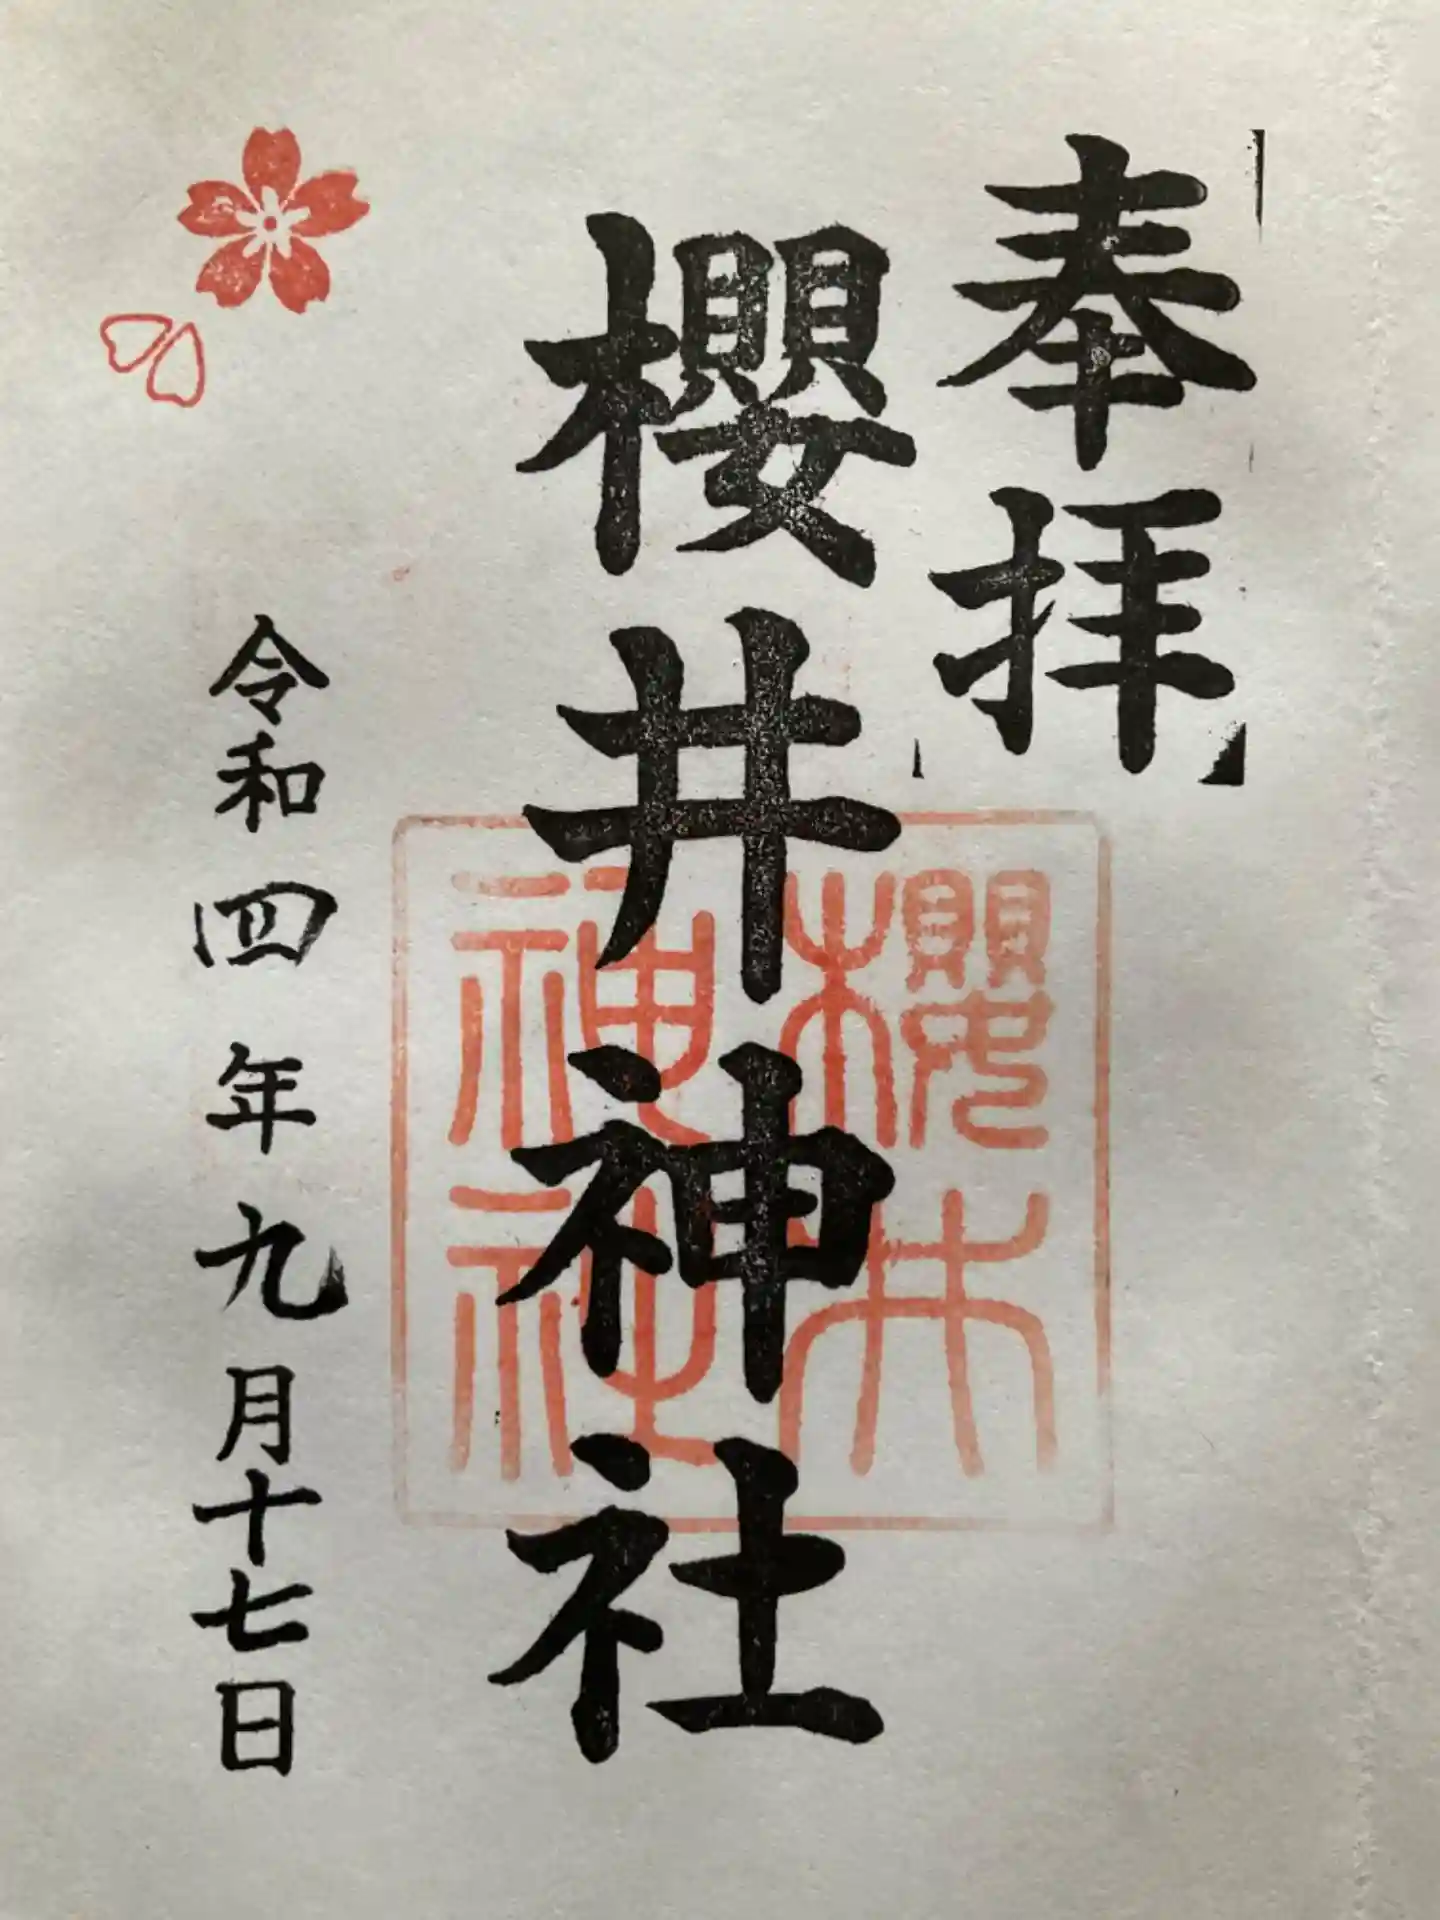 奉拝
櫻井神社
櫻井
神社
令和四年九月十七日